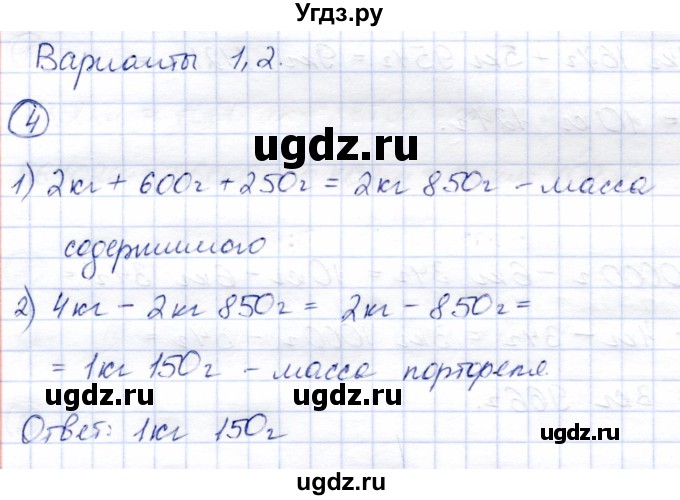 Угдз.ру
Варианты 1,2.
4
ugdz.ru
1) 2кг + 600г + 250г = 2кг 850г - масса
содержимого
ugdz.ru
ugdz.ru
2) 4кг - 2кг 850г = 2кг - 850г =
= 1кг 150г - масса портфеля.
ugdz.ru
ugdz.ru
Ответ: 1кг 150г
ugdz.ru
ugdz.ru